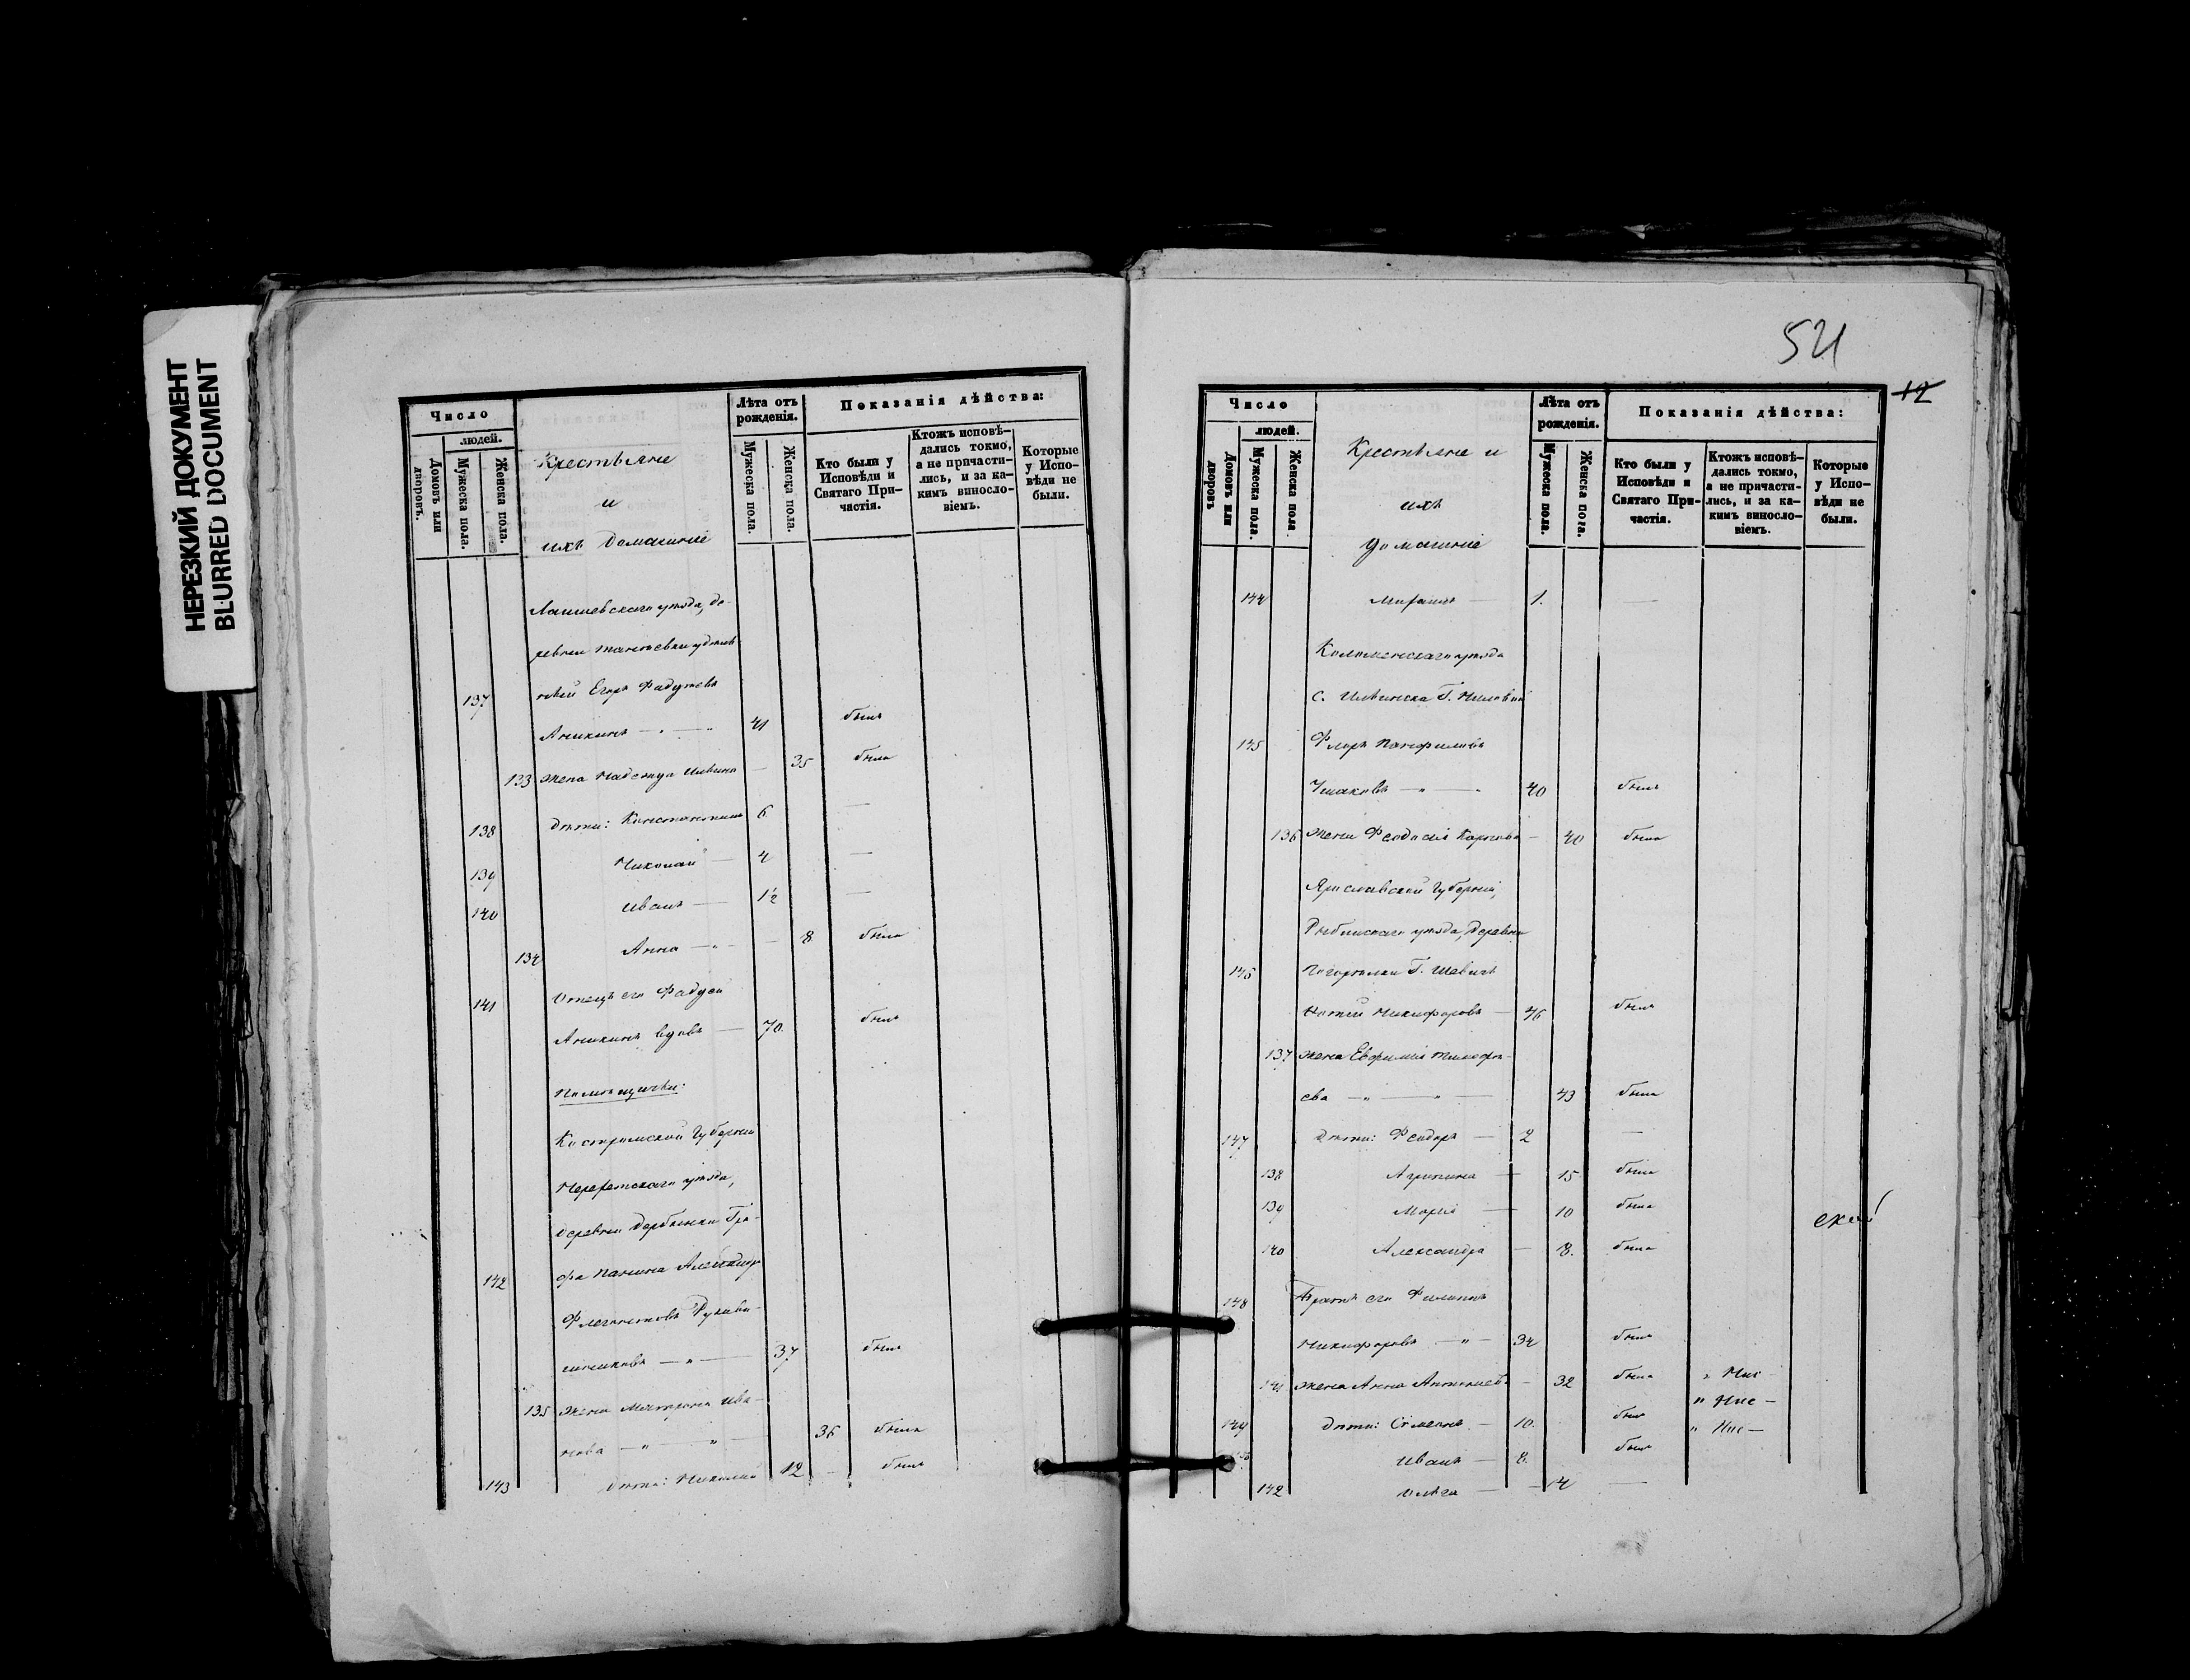 НЕРЕЗКИЙ ДОКУМЕНТ
BLURRED DOCUMENT
Число
людей.
Домовъ или дворовъ.
Мужеска пола.
Женска пола.
Крестьяне
и
ихъ домашніе
Лѣта отъ рожденія.
Мужеска пола.
Женска пола.
Показанія дѣйства:
Кто были у Исповѣди и Святаго Причастія.
Ктожъ исповѣдались токмо, а не причастились, и за какимъ винословіемъ.
Которые у Исповѣди не были.
Лаишевскаго уѣзда, де-
ревни
137 Егоръ Фадѣевъ
Аникинъ 41 былъ
133 Жена Надежда 35 была
138 дѣти: Константинъ 6 —
139 Николай — 4 —
140 Иванъ — 1½ —
134 Анна — 8 была
141 Отецъ его Фадѣй
Аникинъ вдовъ — 70. былъ
Помѣщичьи:
Костромской Губерніи
Нерехтскаго уѣзда,
деревни Гра-
142 фа Панина Александръ
37 былъ
135 Жена Матрона Ива-
нова — " — " 36 была
143 дѣти: Николай 12 былъ
521
12
Число
людей.
Домовъ или дворовъ
Мужеска пола.
Женска пола
Крестьяне и
ихъ
домашніе
Лѣта отъ рожденія.
Мужеска пола.
Женска пола.
Показанія дѣйства:
Кто были у Исповѣди и Святаго Причастія.
Ктожъ исповѣдались токмо, а не причастились, и за какимъ винословіемъ.
Которые у Исповѣди не были.
144 — 1. —
Коломенскаго уѣзда
с. Г.
145 Флоръ Панфиловъ
Ушаковъ — " — 40 былъ
136 Жена Феодосія Карпова — 40 была
Ярославской Губерніи,
Рыбинскаго уѣзда, деревни
146 Погорѣлки Г. Шевичъ
Никифоровъ — 46 былъ
137 Жена Евфимія Тимофѣ-
ева — " — " — 43 была
147 дѣти: Феодоръ — 2 —
138 Агрипина — 15 была
139 Марія — 10 была
140 Александра — 8. была
148 Братъ его Филиппъ
Никифоровъ — " — 34 былъ
141 Жена Анна — 32 была
149 дѣти: Симеонъ — 10. былъ
Иванъ — 8. былъ
142 Ольга — 4 —